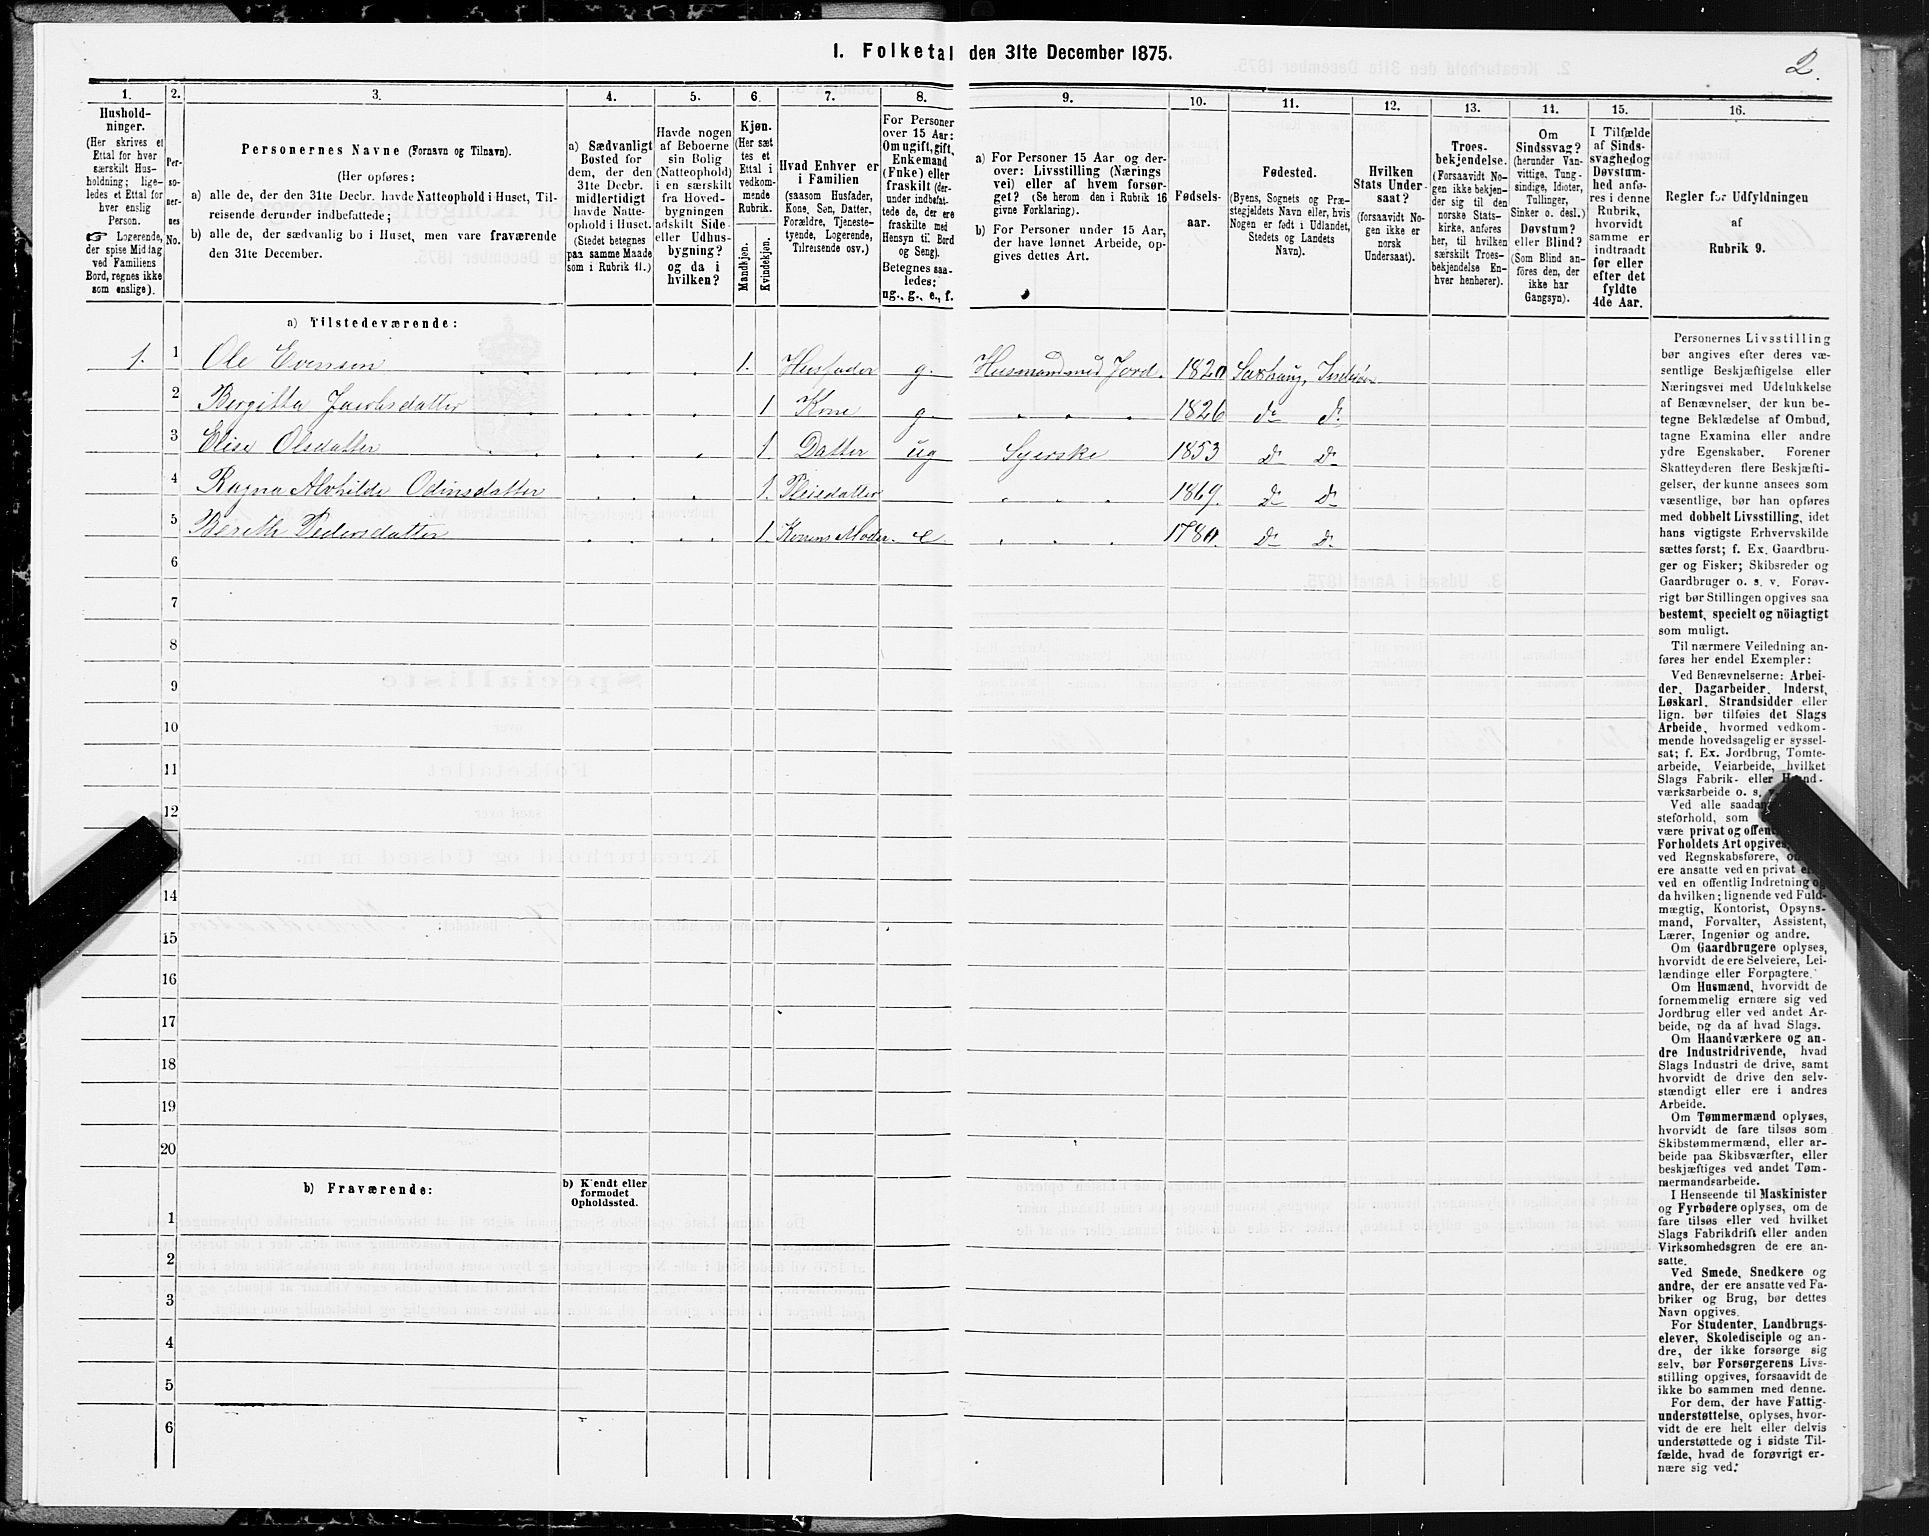 1. Folketal den 31te December 1875.
2.
1.
2.
3.
4.
5.
6.
7.
8.
9.
10.
11.
12.
13.
14.
15.
16.
Hushold-
ninger.
(Her skrives et
Ettal for hver
særskilt Hus-
holdning; lige-
ledes et Ettal for
hver enslig
Person.
☞ Logerende,
der spise Middag
ved Familiens
Bord, regnes ikke
som enslige).
Per-
so-
ner-
nes
No.
Personernes Navne (Fornavn og Tilnavn).
(Her opføres:
a) alle de, der den 31te Decbr. havde Natteophold i Huset, Til-
reisende derunder indbefattede;
b) alle de, der sædvanlig bo i Huset, men vare fraværende
den 31te December.
a) Sædvanligt
Bosted for
dem, der den
31te Decbr.
midlertidigt
havde Natte-
ophold i Huset.
(Stedet betegnes
paa samme Maade
som i Rubrik 11.)
Havde nogen
af Beboerne
sin Bolig
(Natteophold)
i en særskilt
fra Hoved-
bygningen
adskilt Side-
eller Udhus-
bygning?
og da i
hvilken?
Kjøn.
(Her sæt
tes et
Ettal i
vedkom-
mende
Rubrik.
Mandkjøn.
Kvindekjøn.
Hvad Enhver er
i Familien
(saasom Husfader,
Kone, Søn, Datter,
Forældre, Tjeneste-
tyende, Logerende,
Tilreisende osv.)
For Personer
over 15 Aar:
Om ugift, gift,
Enkemand
(Enke) eller
fraskilt (der-
under indbefat-
tede de, der ere
fraskilte med
Hensyn til Bord
og Seng).
Betegnes saa-
ledes:
ug., g., e., f.
a) For Personer 15 Aar og der-
over: Livsstilling (Nærings
vei) eller af hvem forsør-
get? (Se herom den i Rubrik 16
givne Forklaring).
b) For Personer under 15 Aar,
der have lønnet Arbeide, op-
gives dettes Art.
Fødsels-
aar.
Fødested.
(Byens, Sognets og Præ-
stegjeldets Navn eller, hvis
Nogen er født i Udlandet,
Stedets og Landets
Navn).
Hvilken
Stats Under-
saat?
(forsaavidt No-
gen ikke er
norsk
Undersaat).
Troes-
bekjendelse.
(Forsaavidt No-
gen ikke bekjen-
der sig til den
norske Stats-
kirke, anføres
her, til hvilken
særskilt Troes-
bekjendelse En-
hver henhører).
Om
Sindssvag?
(herunder Van-
vittige, Tung-
sindige, Idioter,
Tullinger,
Sinker o. desl.)
Døvstum?
eller Blind?
(Som Blind an-
føres den, der
ikke har
Gangsyn).
I Tilfælde
af Sinds-
svaghed og
Døvstum-
hed anfø-
res i denne
Rubrik,
hvorvidt
samme er
indtraadt
før eller
efter det
fyldte
4de Aar.
Regler for Udfyldningen
af
Rubrik 9.
a) Tilstedeværende:
1. 1 Ole Evensen 1. Husfader g. Husmand med Jord. 1820 Saxhaug, Inderøen
2 Bergitta Jacobsdatter 1 Kone g 1826 do do
3 Elise Olsdatter 1 Datter ug Syerske 1853 do do
4 Ragna Alvhilde Odinsdatter 1. Pleiedatter 1869 do do
5 Bereth Pedersdatter 1. Konens Moder. e. 1780. do do
6
7
8
9
10
11
12
14
15
16
17
18
19
20
b) Fraværende:
b) Kjendt eller
formodet
Opholdssted.
1
2
3
4
5
6
Personernes Livsstilling
bør angives efter deres væ-
sentlige Beskjæftigelse eller
Næringsvei med Udelukkelse
af Benævnelser, der kun be-
tegne Beklædelse af Ombud,
tagne Examina eller andre
ydre Egenskaber. Forener
Skatteyderen flere Beskjæfti-
gelser, der kunne ansees som
væsentlige, bør han opføres
med dobbelt Livsstilling, idet
hans vigtigste Erhvervskilde
sættes først; f. Ex. Gaardbru-
ger og Fisker; Skibsreder og
Gaardbruger o. s. v. Forøv-
rigt bør Stillingen opgives saa
bestemt, specielt og nöiagtigt
som muligt.
Til nærmere Veiledning an-
føres her endel Exempler:
Ved Benævnelserne: Arbei-
der, Dagarbeider, Inderst,
Løskarl, Strandsidder eller
lign. bør tilføies det Slags
Arbeide, hvormed vedkom-
mende hovedsagelig er syssel-
sat; f. Ex. Jordbrug, Tomte-
arbeide, Veiarbeide, hvilket
Slags Fabrik- eller Haand-
værksarbeide o. s.
Ved alle saadan
steforhold, som
være privat og offen
Forholdets Art opgives,
ved Regnskabsførere, om
ere ansatte ved en privat el
ved en offentlig Indretning og
da hvilken; lignende ved Fuld-
mægtig, Kontorist, Opsyns-
mand, Forvalter, Assistent,
Lærer, Ingeniør og andre.
Om Gaardbrugere oplyses,
hvorvidt de ere Selveiere, Lei-
lændinge eller Forpagtere.
Om Husmænd, hvorvidt de
fornemmelig ernære sig ved
Jordbrug eller ved andet Ar-
beide, og da af hvad Slags.
Om Haandværkere og an-
dre Industridrivende, hvad
Slags Industri de drive, samt
hvorvidt de drive den selv-
stændigt eller ere i andres
Arbeide.
Om Tømmermænd oplyses,
hvorvidt de fare tilsøs som
Skibstømmermænd, eller ar-
beide paa Skibsværfter, eller
beskjæftiges ved andet Tøm-
mermandsarbeide.
I Henseende til Maskinister
og Fyrbødere oplyses, om de
fare tilsøs eller ved hvilket
Slags Fabrikdrift eller anden
Virksomhedsgren de ere an-
satte.
Ved Smede, Snedkere og
andre, der ere ansatte ved Fa-
briker og Brug, bør dettes
Navn opgives.
For Studenter, Landbrugs-
elever, Skoledisciple og an-
dre, der ikke forsørge sig
selv, bør Forsørgerens Livs-
stilling opgives, forsaavidt de
ikke bo sammen med denne.
For dem, der have Fattig-
understøttelse, oplyses, hvor-
vidt de ere helt eller delvis
understøttede og i sidste Til-
fælde, hvad de forøvrigt er-
nære sig ved.